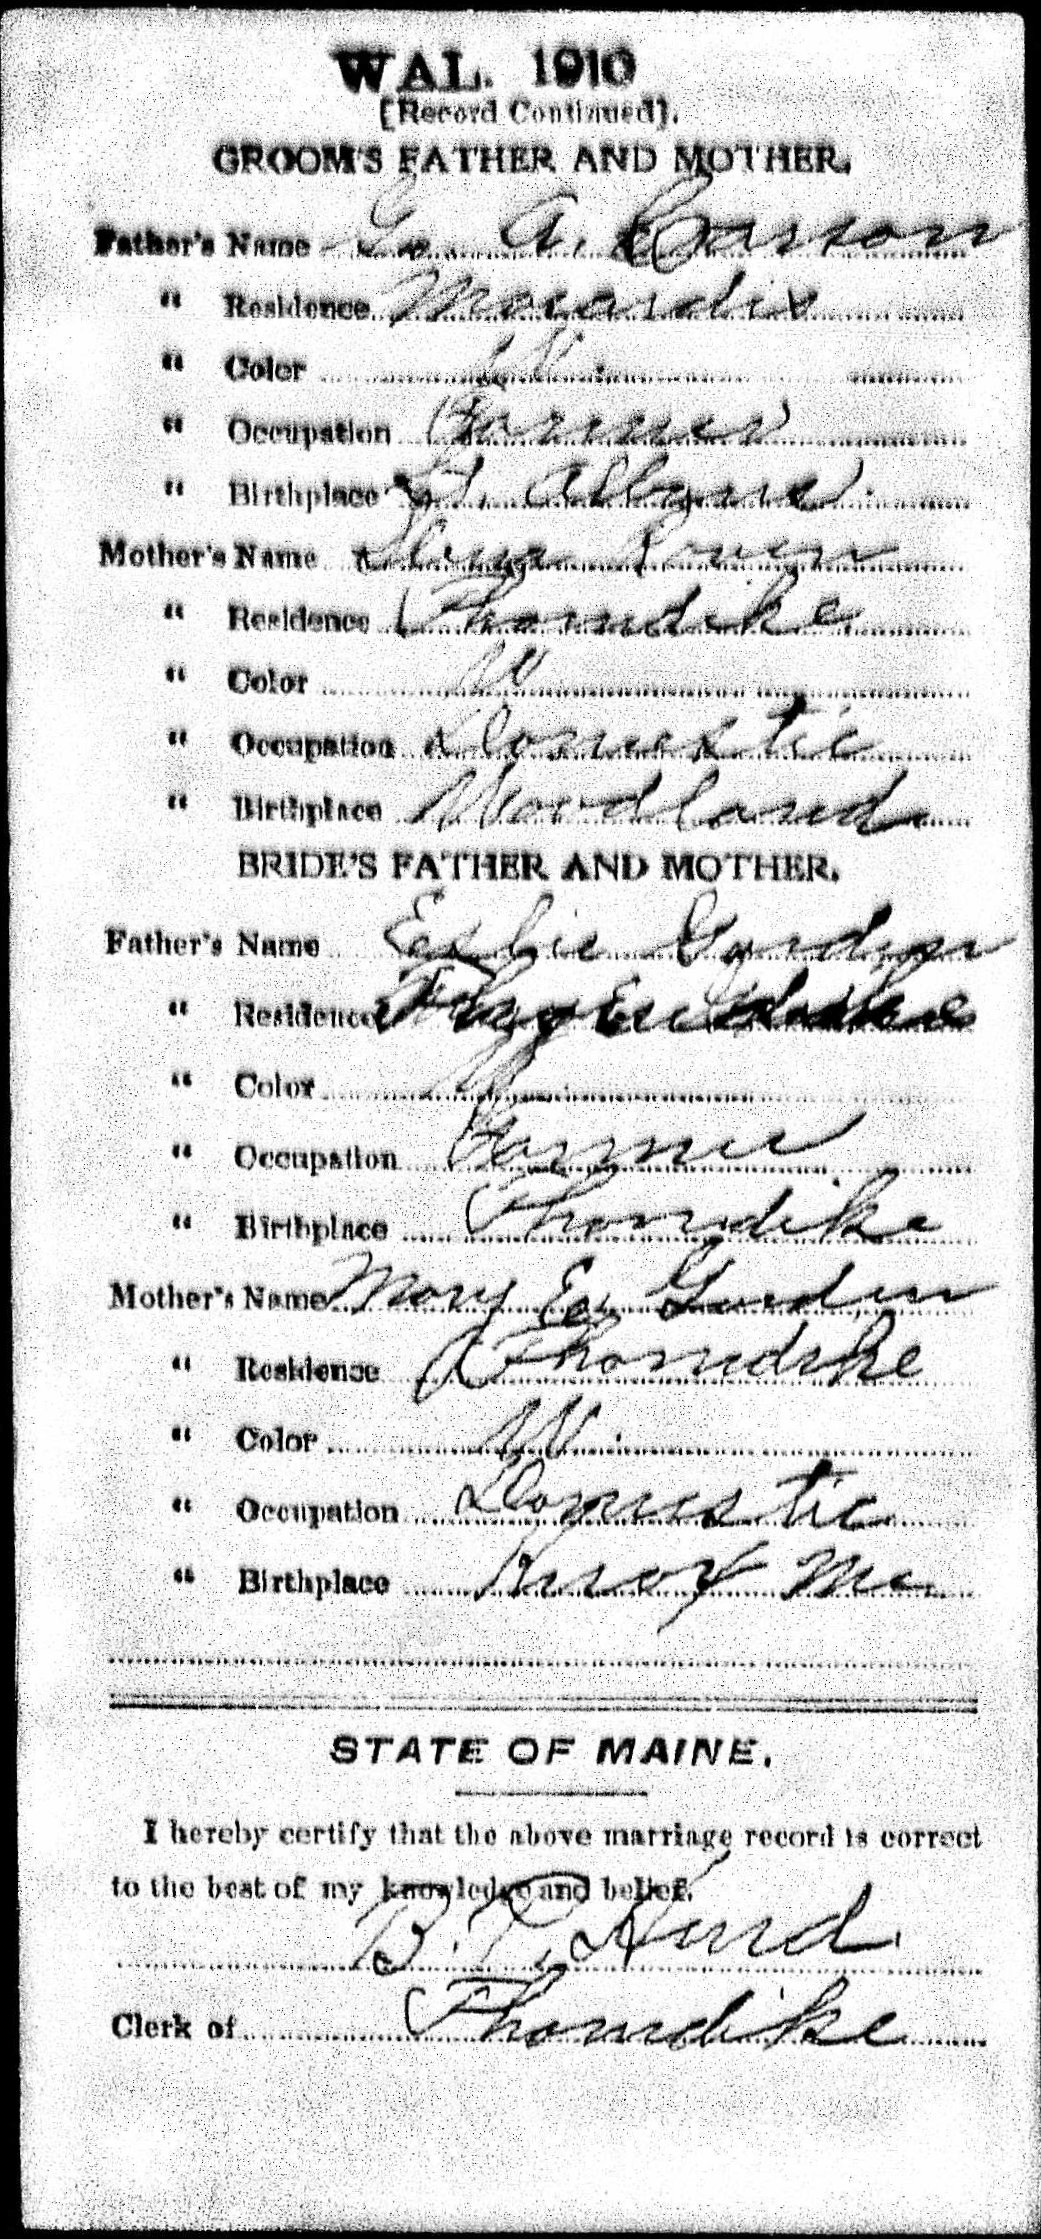 WAL. 1910
[Record Continued].
GROOM'S FATHER AND MOTHER.
Father's Name G. A. Carson
" Residence Masardis
" Color W.
" Occupation Farmer
" Birthplace St. Albans
Mother's Name
" Residence Thorndike
" Color W
" Occupation Domestic
" Birthplace Woodland
BRIDE'S FATHER AND MOTHER.
Father's Name Gordon
" Residence
" Color W
" Occupation Farmer
" Birthplace Thorndike
Mother's Name Mary E. Gordon
" Residence Thorndike
" Color W.
" Occupation Domestic
" Birthplace Knox Me.
STATE OF MAINE.
I hereby certify that the above marriage record is correct
to the best of my knowledge and belief.
B. Hurd
Clerk of Thorndike